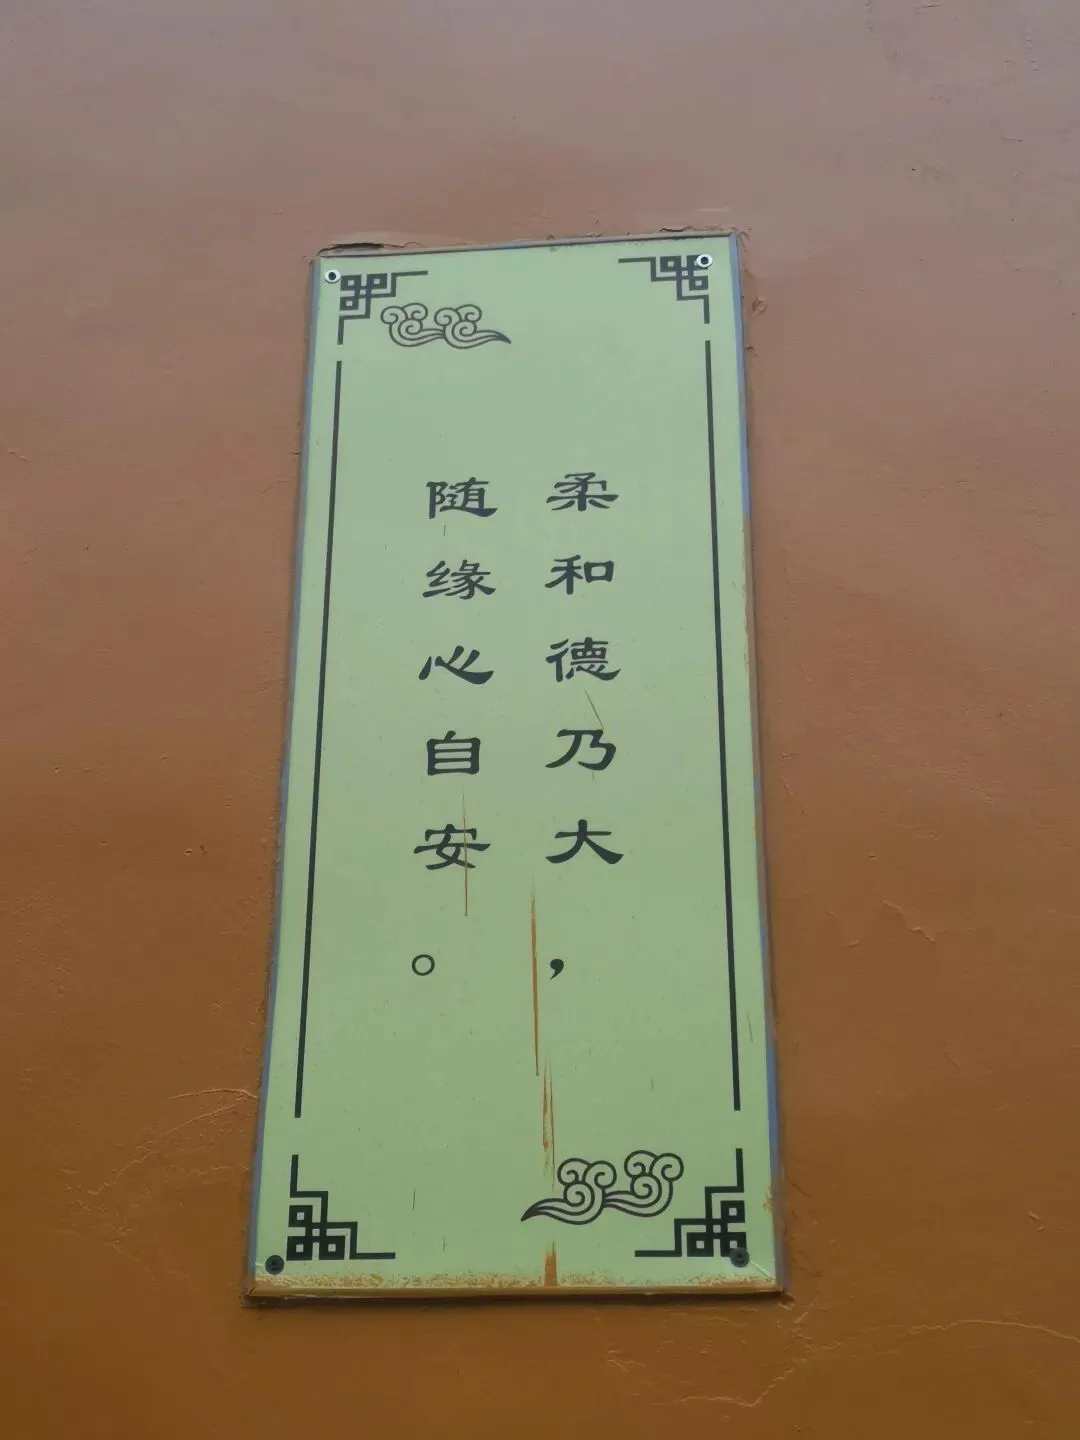 柔和德乃大，
随缘心自安。